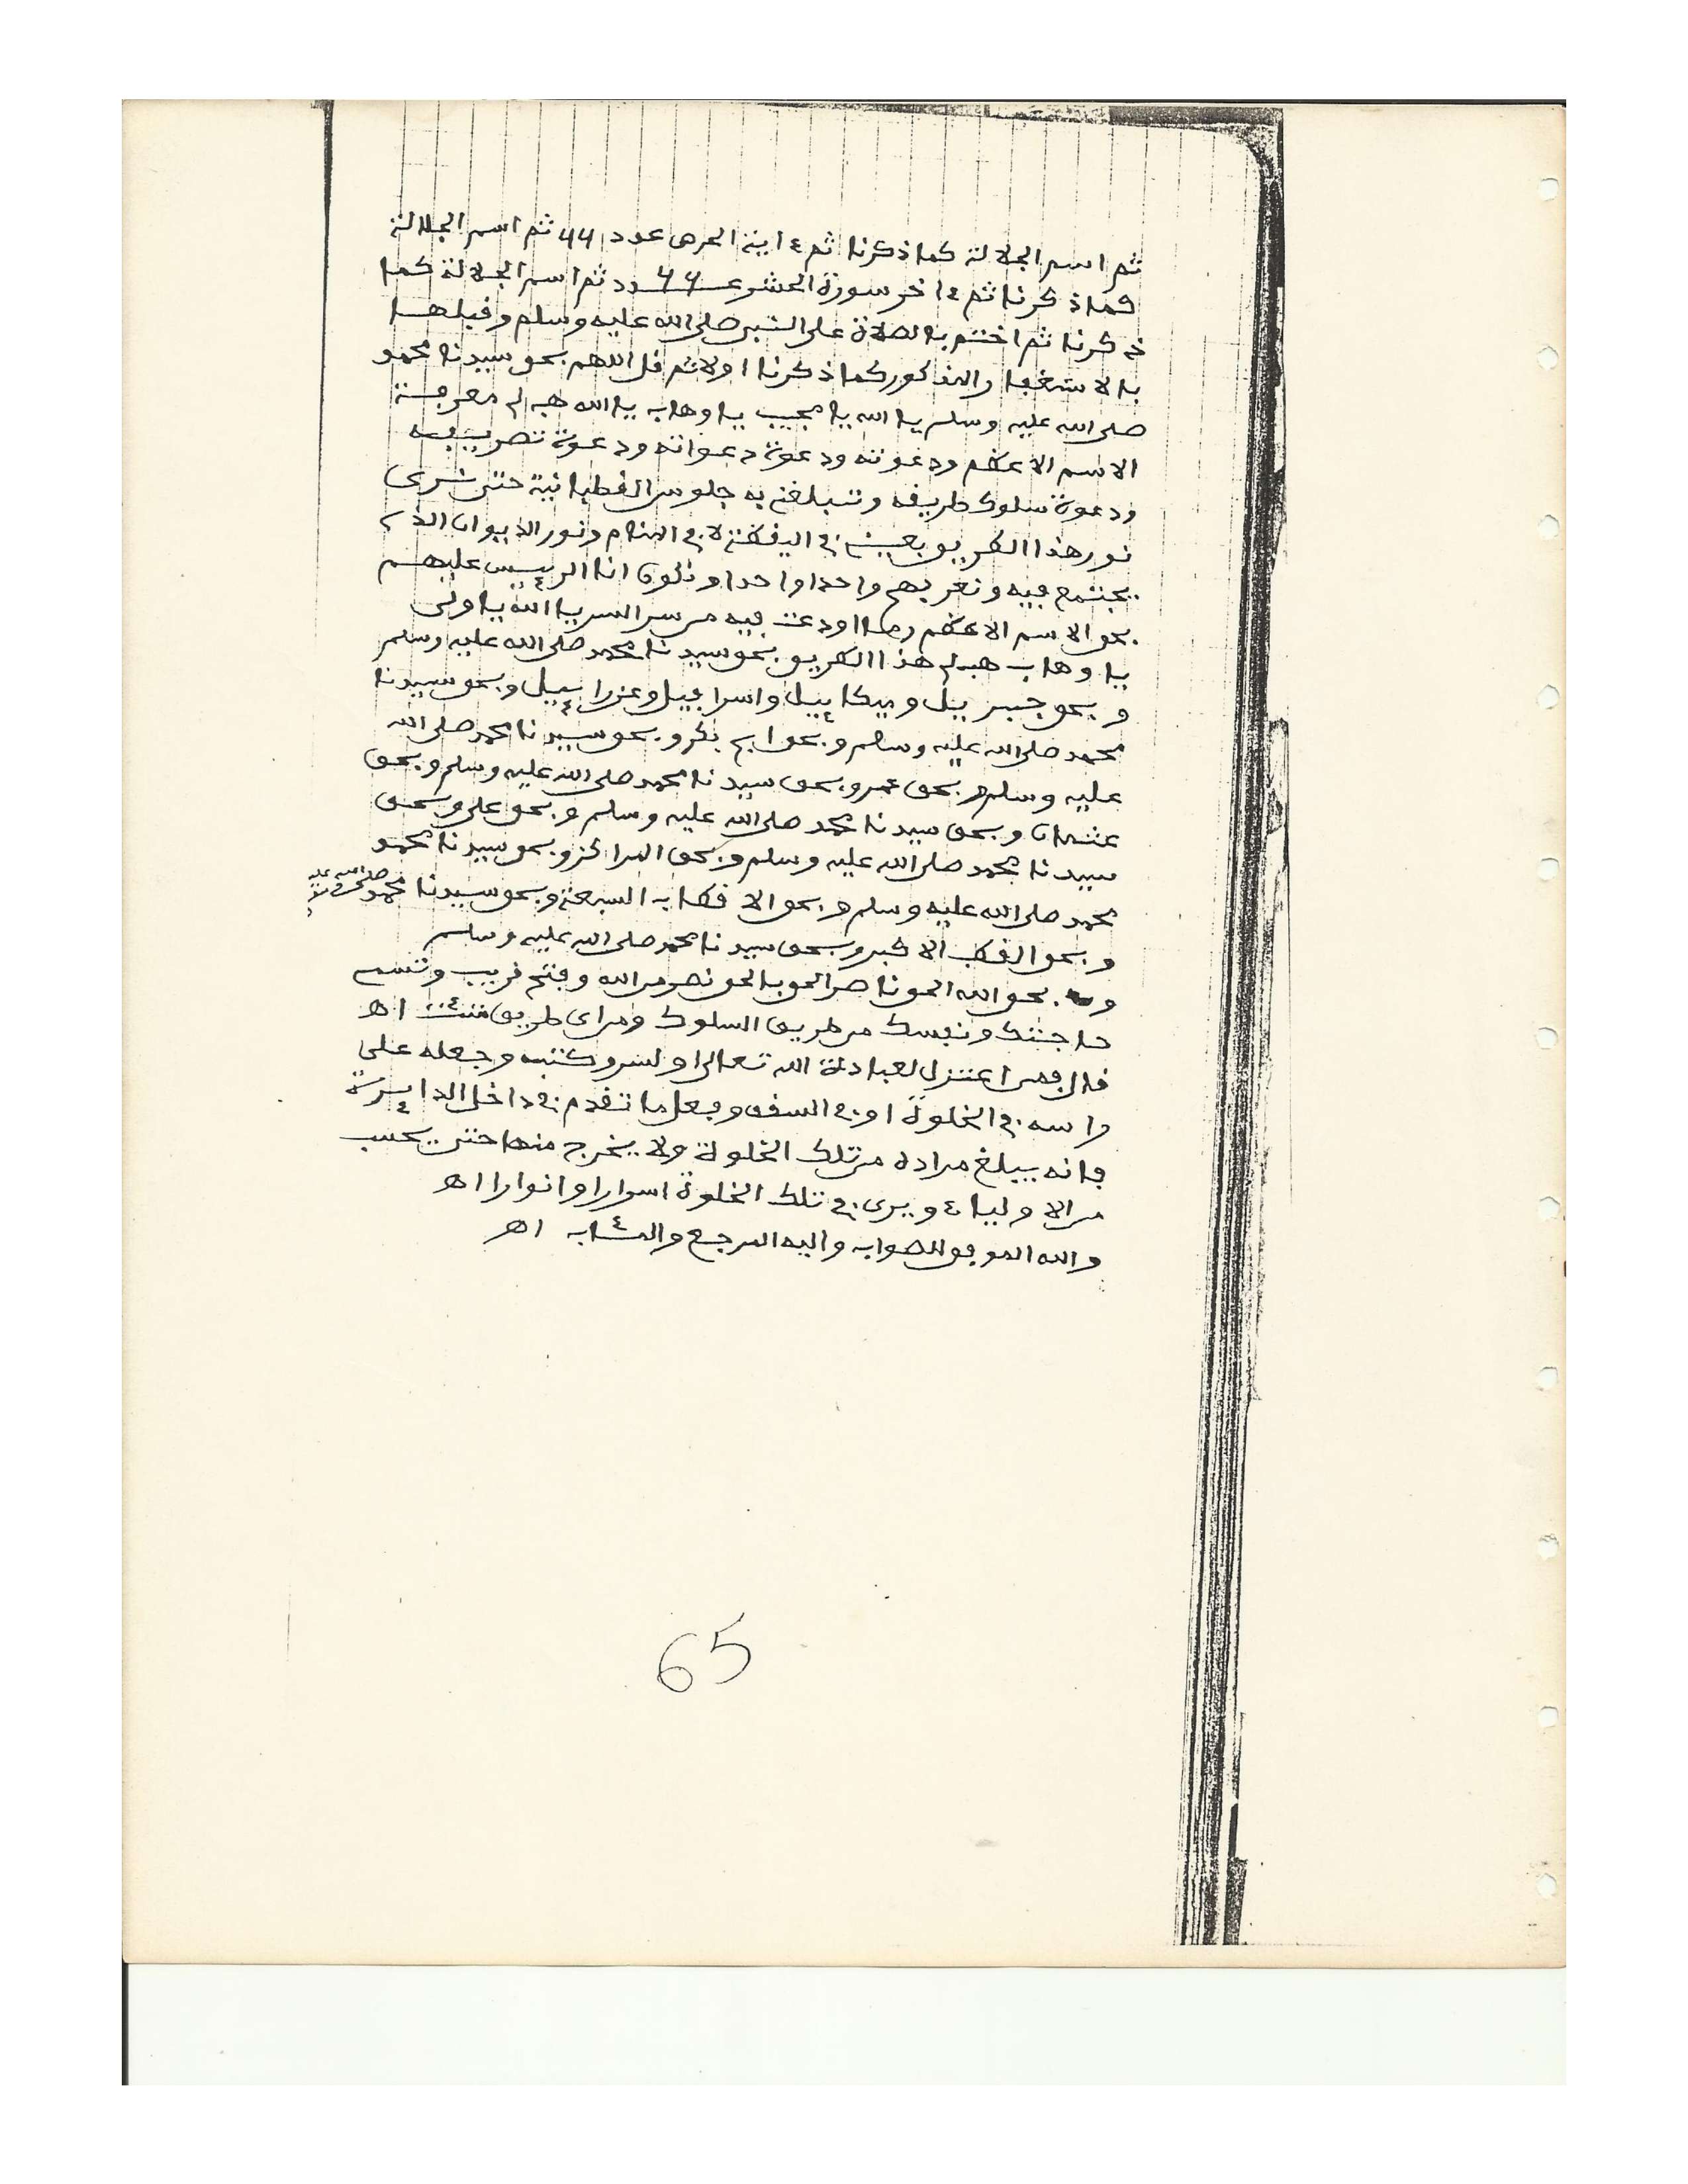 ثم اسم الجلالة كما ذكرنا ثم ءاية الحرص عدد 66 ثم اسم الجلالة
كما ذكرنا ثم ءاخر سورة الحشر عــ66ــدد ثم اسم الجلالة كما
ذكرنا ثم اختم بالصلاة على النبي صلى الله عليه وسلم وقبلها
بالاستغفار المذكور كما ذكرنا اولا ثم قل اللهم بحق سيدنا محمد
صلى الله عليه وسلم يا الله يا مجيب يا وهاب يا الله هب لي معرفة
الاسم الاعظم ودعوته ودعوة دعواته ودعوة تصريفه
ودعوة سلوك طريقه وتبلغني به جلوس القطبانية حتى نرى
نور هذا الطريق بعيني في اليقظة لا في المنام ونور الديوان الذي
يجتمع فيه ونعرفهم واحدا واحدا ونكون انا الرييس عليهم
بحق الاسم الاعظم وما اودعت فيه من سر السر يا الله يا ولي
يا وهاب هب لي هذا الطريق بحق سيدنا محمد صلى الله عليه وسلم
و بحق جبرييل و ميكاييل واسرافيل وعزراييل و بحق سيدنا
محمد صلى الله عليه وسلم و بحق ابي بكر و بحق سيدنا محمد صلى الله
عليه وسلم و بحق عمر و بحق سيدنا محمد صلى الله عليه وسلم و بحق
عثمان و بحق سيدنا محمد صلى الله عليه وسلم و بحق علي و بحق
سيدنا محمد صلى الله عليه وسلم و بحق المراكز و بحق سيدنا محمد
محمد صلى الله عليه وسلم و بحق الاقطاب السبعة و بحق سيدنا محمد صلى الله عليه
و بحق القطب الاكبر و بحق سيدنا محمد صلى الله عليه وسلم
و بحق الله الحق ناصر الحق بالحق نصر من الله وفتح قريب وتسم
حاجتك ونفسك من طريق السلوك ومن اى طريق شئت اهـ
قال فمن اعتزل لعبادة الله تعالى او لسر وكتبه وجعله على
راسه في الخلوة او في السقف وفعل ما تقدم في داخل الدايرة
فانه يبلغ مراده من تلك الخلوة ولا يخرج منها حتى يحسب
من الاولياء ويرى في تلك الخلوة اسرارا وانوارا اهـ
والله الموفق للصواب واليه المرجع والمئاب اهـ
65